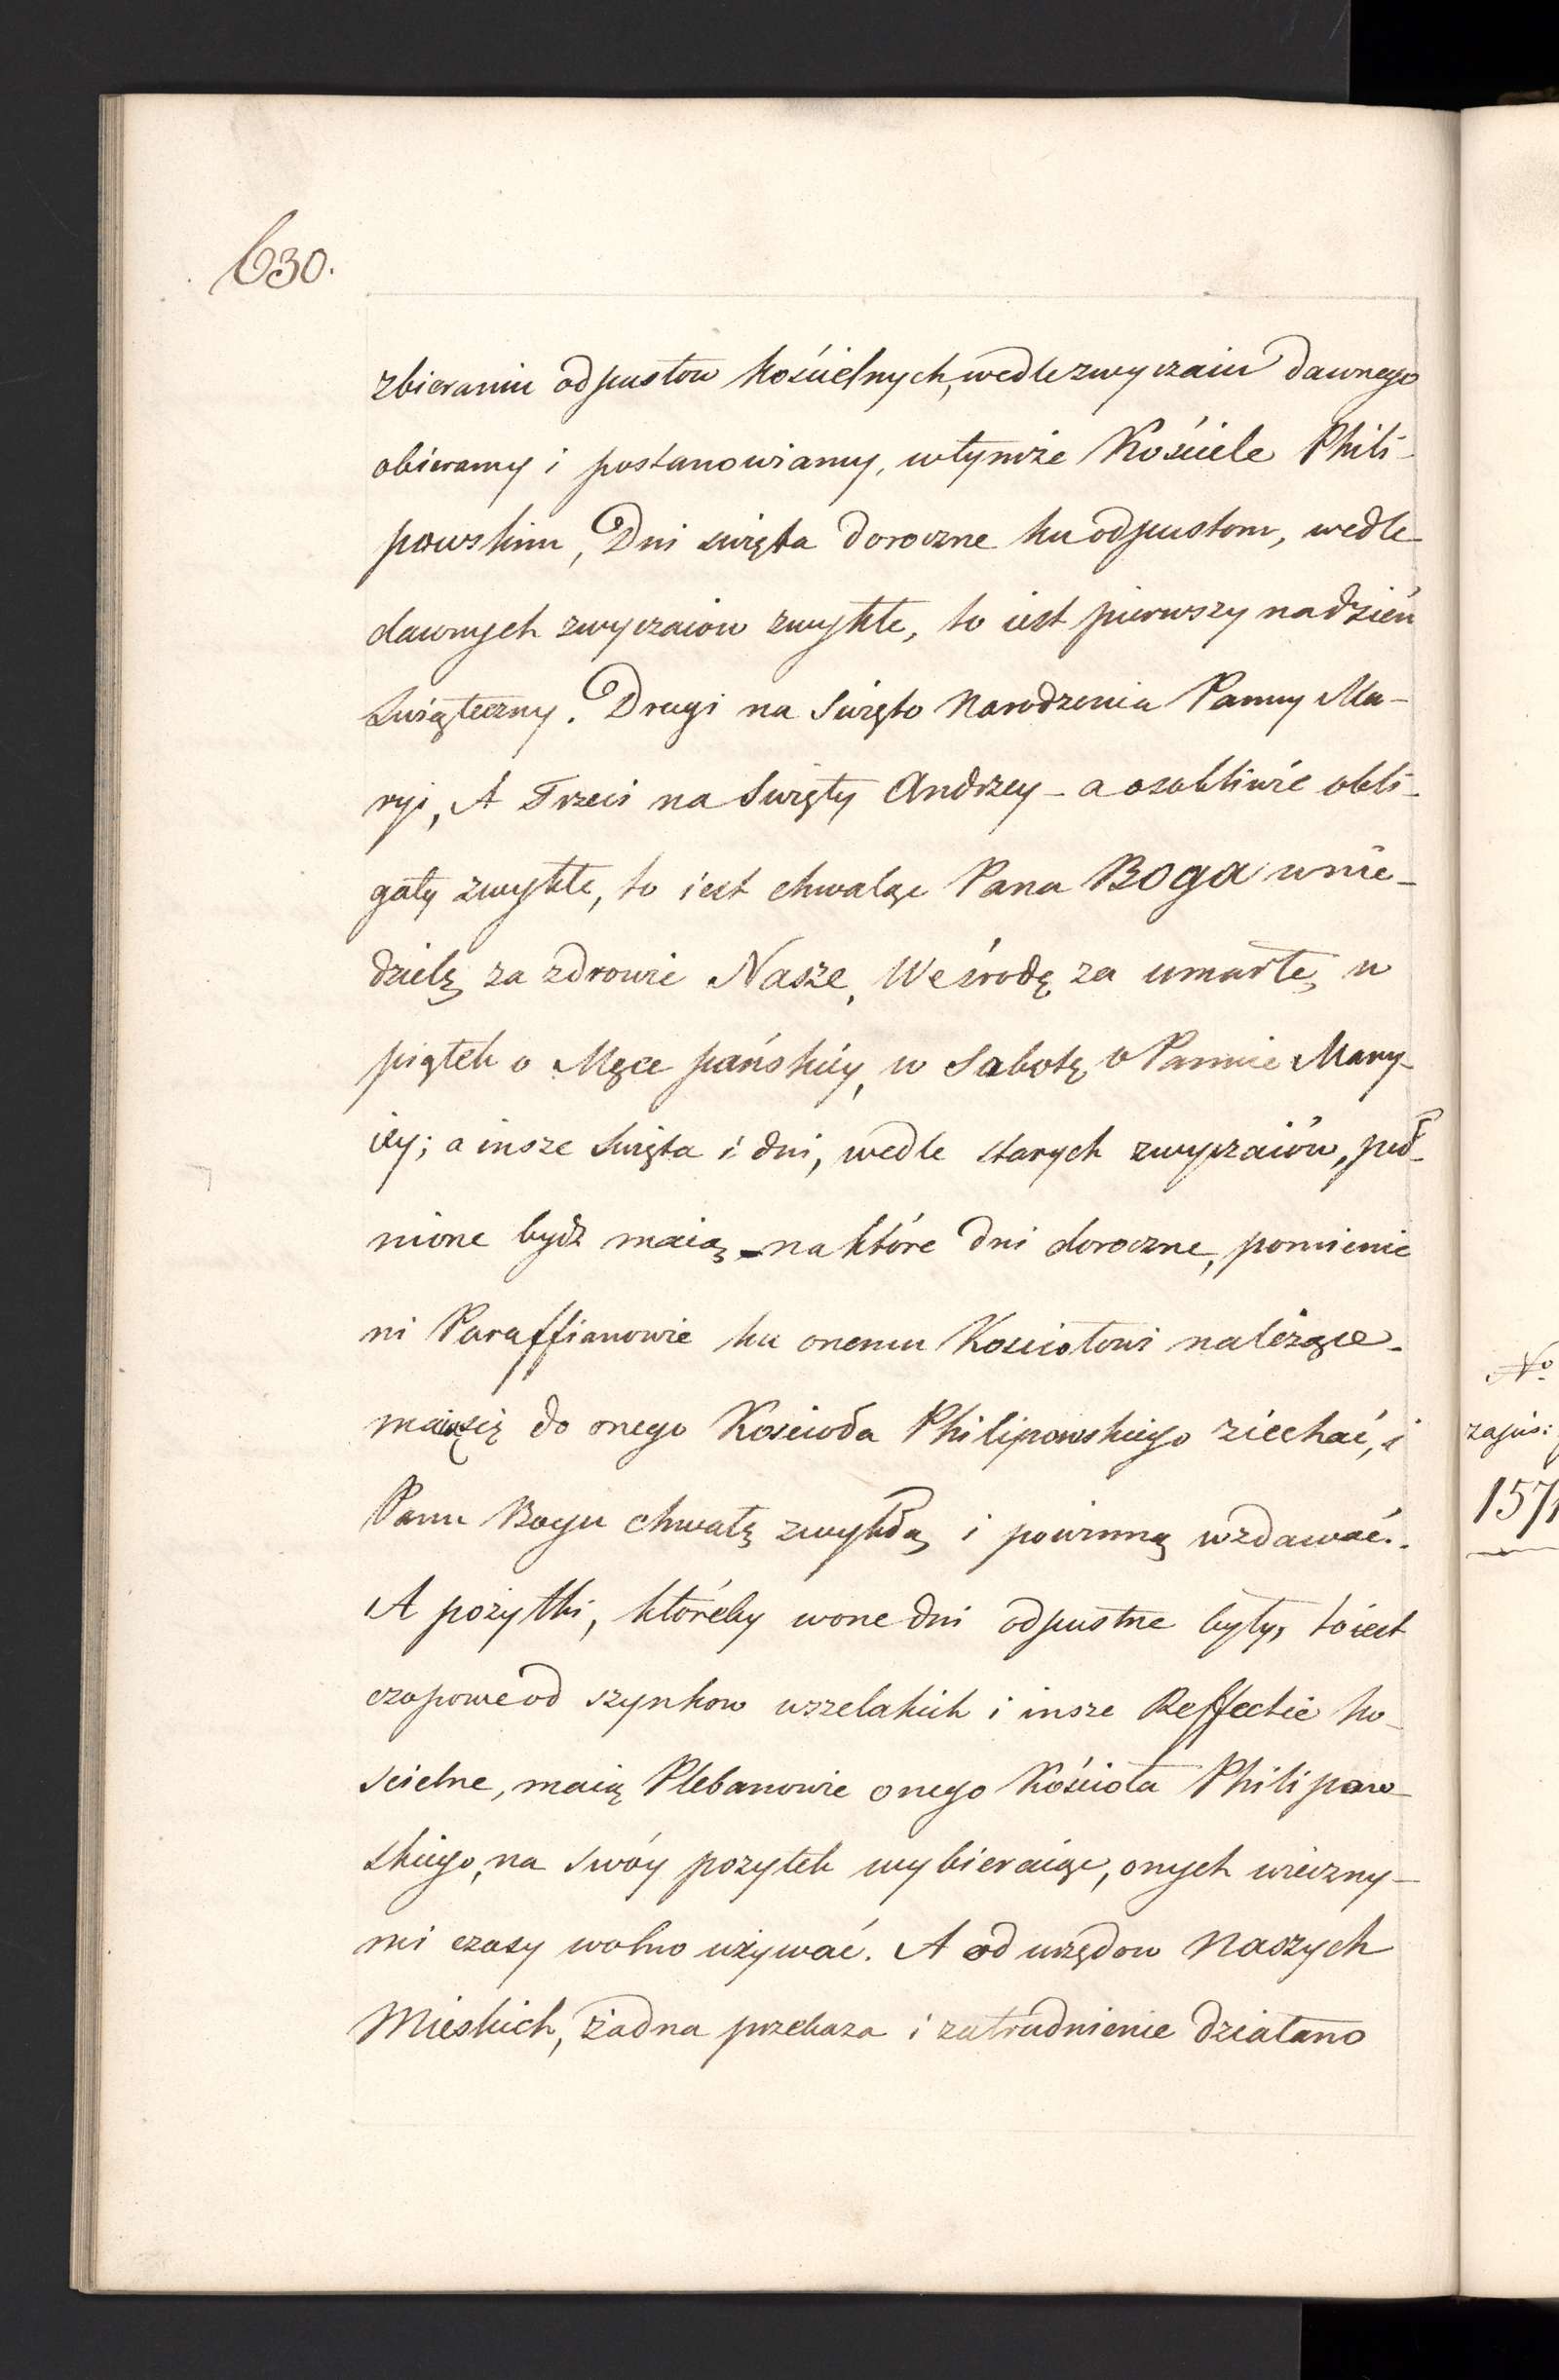 630.
zbieraniu odpustow kościelnych, wedle zwyczaiu dawnego
obieramy i postanowiamy, wtymże Kościele Phili-
powskim, Dni święta doroczne ku odpustom, wedle
dawnych zwyczaiow zwykłe, to iest pierwszy na dzień
Swiąteczny. Drugi na Swięto Narodzenia Panny Ma-
ryi, A Trzeci na Swięty Andrzey - a osobliwie obli-
gaty zwykłe, to iest chwaląc Pana Boga w nie-
dzielę za zdrowie Nasze, We środę za umarłe, w
piątek o Męce pańskiéy, w Sobotę o Pannie Mary-
iey; a insze Swięta i dni, wedle starych zwyczaiów, peł-
nione bydź maią - na które dni doroczne, pomienie
ni Paraffianowie ku onemu Kosciołowi należące
maią się do onego Koscioła Philipowskiego ziechać, i
Panu Bogu chwałę zwykłą i powinną wzdawać.
A pożytki, któréby w one dni odpustne były, to iest
czopowe od szynkow wszelakich i insze Reffectie ko-
scielne, maią Plebanowie onego Kościoła Philipow-
skiego, na swóy pozytek wybieraiąc, onych wieczny-
mi czasy wolno używać. A od urzędow Naszych
Mieskich, żadna przekaza i zatrudnienie działano
No
zajus:
157